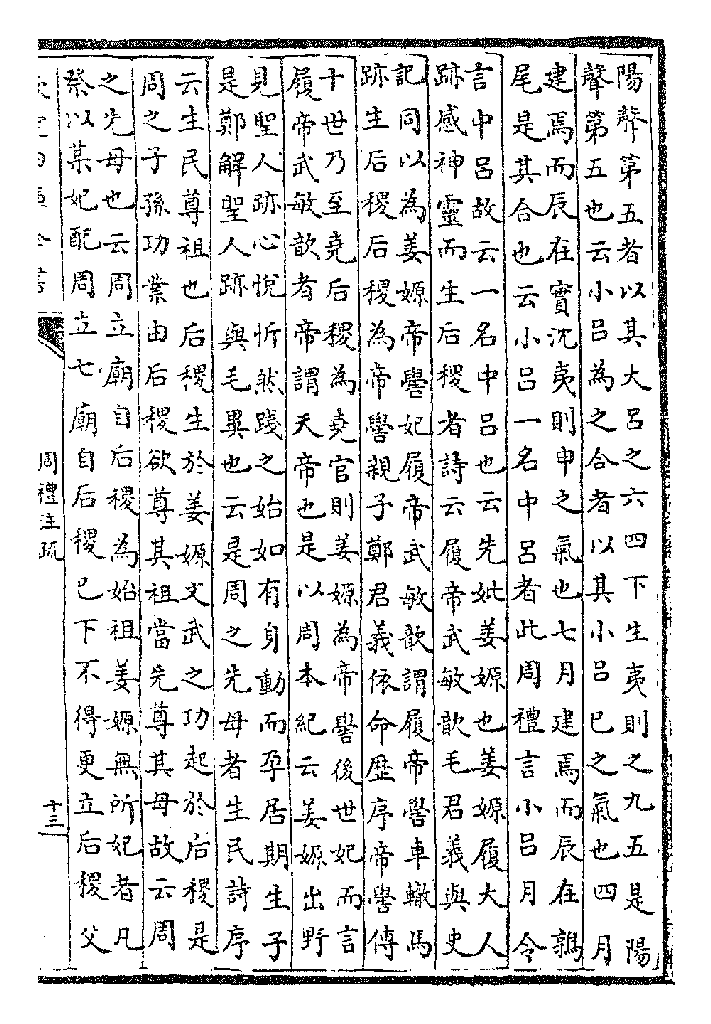 陽聲第五者以其大呂之六四下生夷則之九五是陽
聲第五也云小呂為之合者以其小呂巳之氣也四月
建焉而辰在實沈夷則申之氣也七月建焉而辰在鶉
尾是其合也云小呂一名中呂者此周禮言小呂月令
言中呂故云一名中呂也云先妣姜嫄也姜嫄履大人
跡感神靈而生后稷者詩云履帝武敏歆毛君義與史
記同以為姜嫄帝嚳妃履帝武敏歆謂履帝嚳車轍馬
跡生后稷后稷為帝嚳親子鄭君義依命歴序帝嚳傳
十世乃至堯后稷為堯官則姜嫄為帝嚳後世妃而言
履帝武敏歆者帝謂天帝也是以周本紀云姜嫄出野
見聖人跡心悅忻然踐之始如有身動而孕居期生子
是鄭解聖人跡與毛異也云是周之先母者生民詩序
云生民尊祖也后稷生於姜嫄文武之功起於后稷是
周之子孫功業由后稷欲尊其祖當先尊其母故云周
之先母也云周立廟自后稷為始祖姜嫄無所妃者凡
祭以某妃配周立七廟自后稷已下不得更立后稷父
欽定四庫全書
周禮注疏
十三